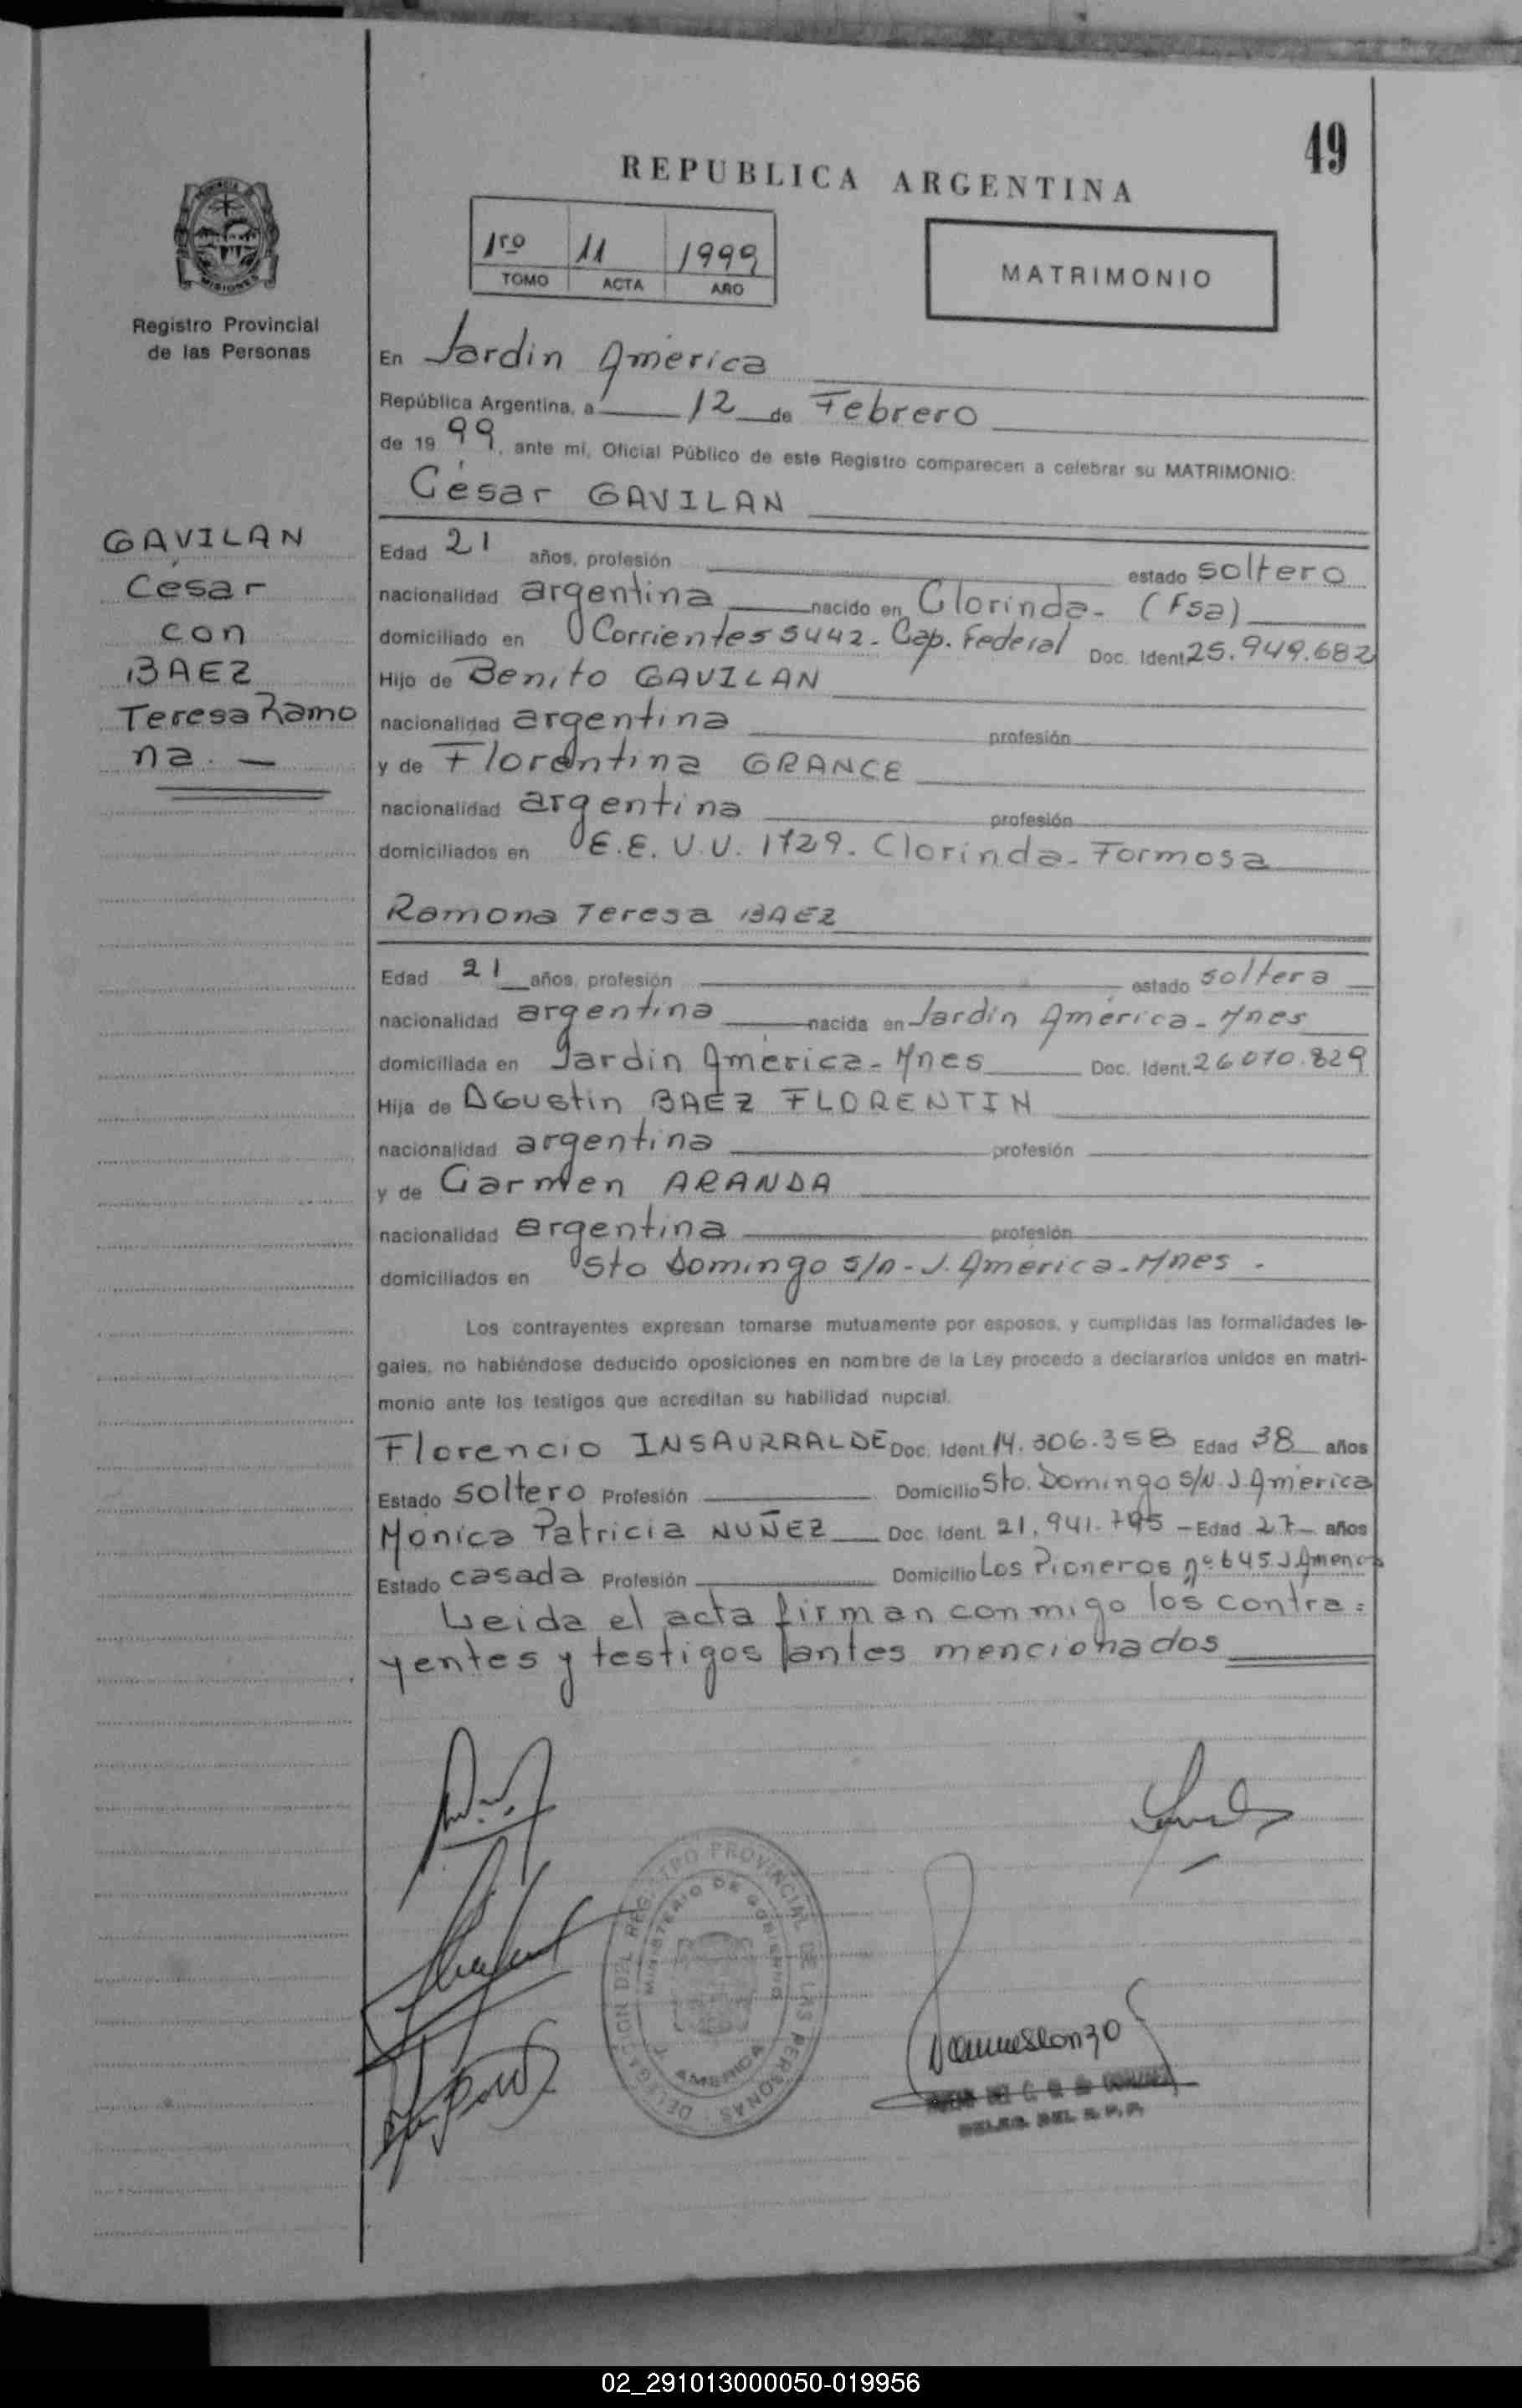 49
REPUBLICA ARGENTINA
1ro 11 1999
TOMO ACTA AÑO
MATRIMONIO
MISIONES
Registro Provincial
de las Personas
GAVILAN
César
con
BAEZ
Teresa Ramo
na. —
En Jardin América
República Argentina, a 12 de Febrero
de 1999, ante mí, Oficial Público de este Registro comparecen a celebrar su MATRIMONIO:
César GAVILAN
Edad 21 años, profesión estado soltero
nacionalidad argentina nacido en Clorinda- (Fsa)
domiciliado en Corrientes 5442- Cap. Federal Doc. Ident 25.949.682
Hijo de Benito GAVILAN
nacionalidad argentina profesión
y de Florentina GRANCE
nacionalidad argentina profesión
domiciliados en E.E.U.U. 1729. Clorinda- Formosa
Ramona Teresa BAEZ
Edad 21 años, profesión estado soltera
nacionalidad argentina nacida en Jardin América- Mnes
domiciliada en Jardin América- Mnes Doc. Ident. 26070.829
Hija de Agustin BAEZ FLORENTIN
nacionalidad argentina profesión
y de Carmen ARANDA
nacionalidad argentina profesión
domiciliados en Sto Domingo s/n- J. América- Mnes -
Los contrayentes expresan tomarse mutuamente por esposos, y cumplidas las formalidades le-
gales, no habiéndose deducido oposiciones en nombre de la Ley procedo a declararlos unidos en matri-
monio ante los testigos que acreditan su habilidad nupcial.
Florencio INSAURRALDE Doc. Ident 14.306.358 Edad 38 años
Estado soltero Profesión Domicilio Sto. Domingo S/N. J. América
Mónica Patricia NUÑEZ Doc. Ident. 21.941.795 - Edad 27 años
Estado casada Profesión Domicilio Los Pioneros nº 645 J. America
Leida el acta firman conmigo los contra=
yentes y testigos antes mencionados
DELEGACION DEL REGISTRO PROVINCIAL DE LAS PERSONAS
MINISTERIO DE GOBIERNO
J. AMERICA
DELEG. DEL R. P. P.
02_291013000050-019956